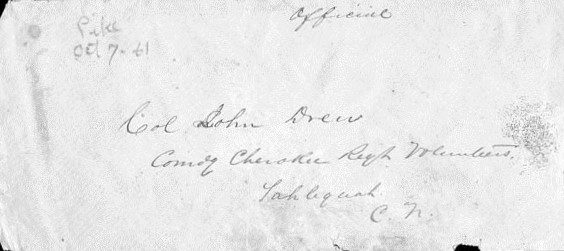 Official
Pike
Oct 7. 61
Col John Drew
Comdg Cherokee Regt Volunteers.
Tahlequah
C. N.